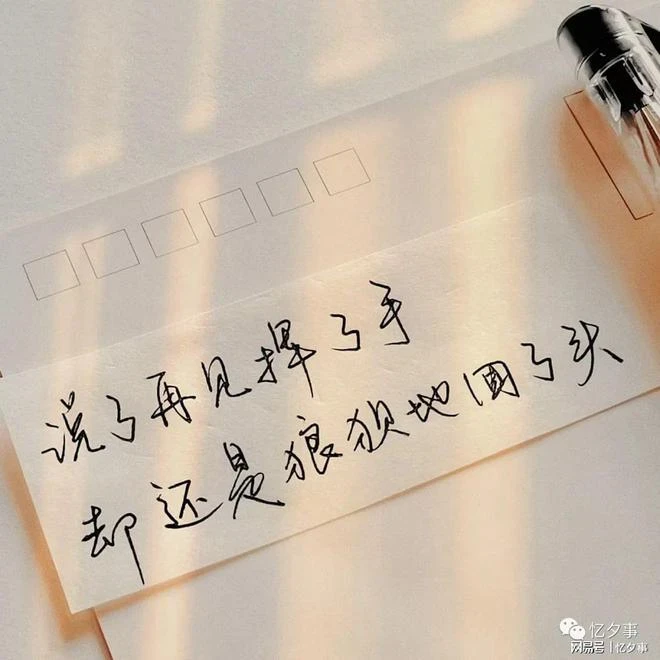 说了再见挥了手
却还是狼狈地回了头
忆夕事
网易号 | 忆夕事